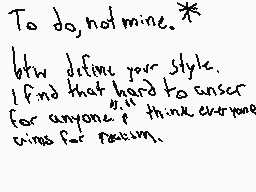 To do, not mine.*
btw define your style.
I find that hard to anser
for anyone "." I think everyone
aims for realism.